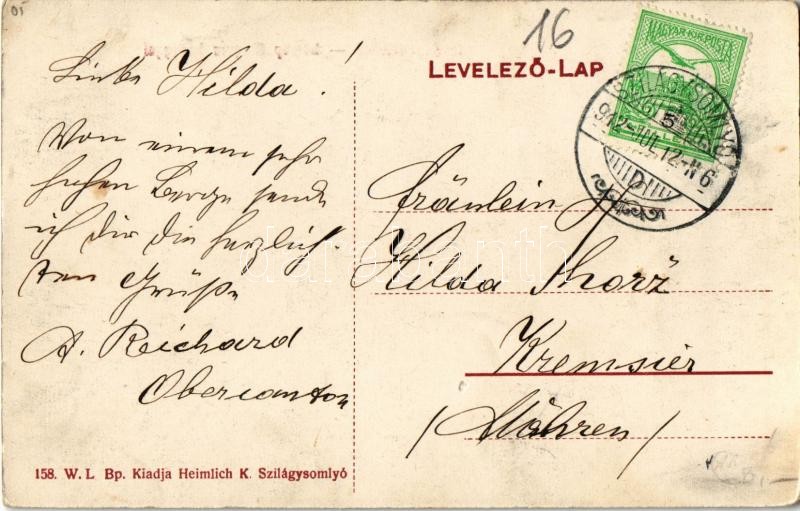 16
LEVELEZŐ-LAP
MAGYAR KIR. POSTA
SZILÁGYSOMLYÓ
912 JUL 12 -N 6
D
Liebe Hilda!
Von einem sehr
hohen Berge sende
ich dir die herzlich-
sten Grüße
A. Reichard
Fräulein
Hilda Thorž
Kremsier
/Mähren/
darabanth
158. W. L. Bp. Kiadja Heimlich K. Szilágysomlyó